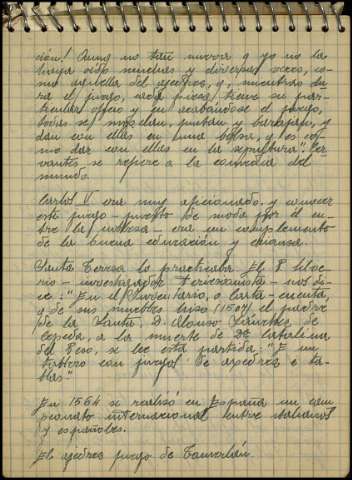 ción! Aunq no tan nueva q yo no la
haya oido muchas y diversas veces, co-
mo aquella del ajedrez, q, mientras du-
ra el juego, cada pieza tiene su par-
ticular oficio y en acabándose el juego,
todas se mezclan, juntan y barajan, y
dan con ellas en una bolsa, q es co-
mo dar con ellas en la sepultura". Cer-
vantes se refiere a la comedia del
mundo.
Carlos V era muy aficionado, y conocer
este juego - puesto de moda por él en-
tre la nobleza - era un complemento
de la buena educación y crianza.
Santa Teresa lo practicaba. El P. Silve-
rio - investigador Teresianista - nos di-
ce: "En el Inventario, o Carta-cuenta,
q de sus muebles hizo (1507) el padre
de la Santa, D. Alonso Sánchez de
Cepeda, a la muerte de Dª Catalina
del Peso, se lee esta partida: "E un
tablero con juego de axedrez e ta-
blas".
En 1564 se realizó en España un cam
peonato internacional entre italianos
y españoles.
El ajedrez juego de Tamerlán.